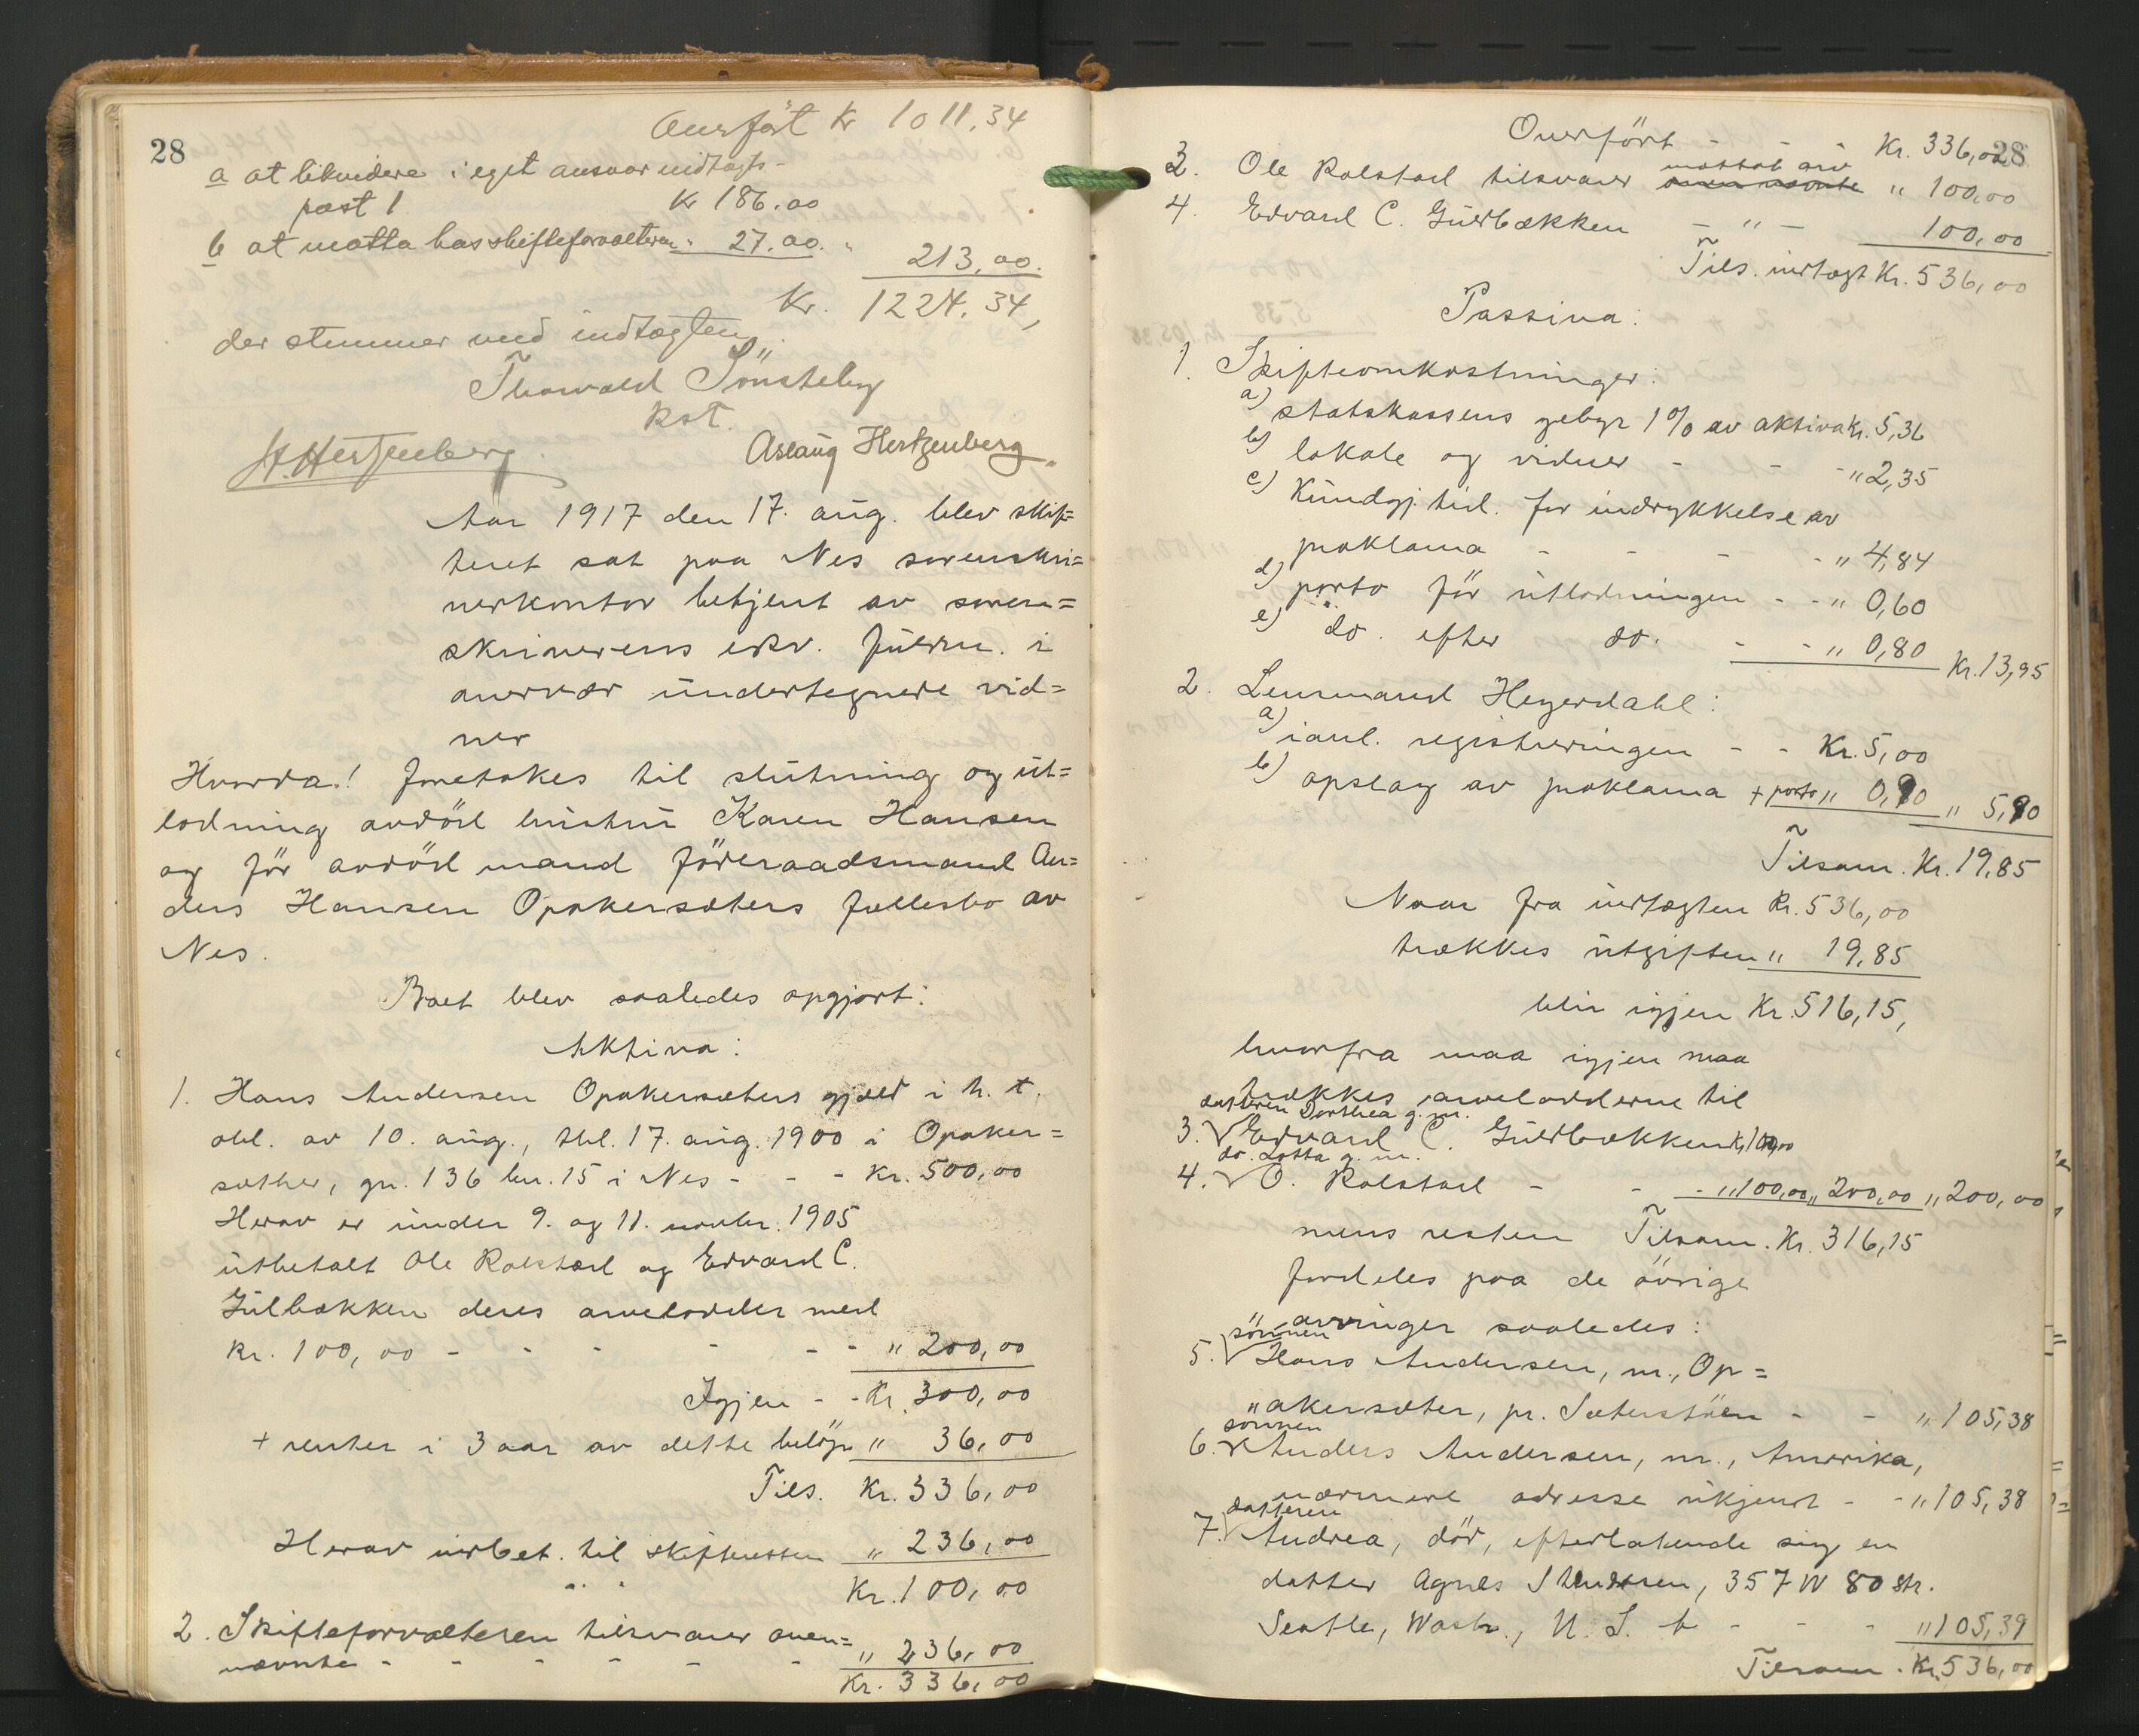 28
Overfört Kr 1011,34
a at likvidere i eget ansvar indtægts-
post 1 Kr 186.00
b at motta hos skifteforvalteren " 27.00. " 213,00.
Kr. 1224.34,
der stemmer med indtægten.
Thorvald Sönsteby
kst.
H. Hertzenberg. Aslaug Hertzenberg.
Aar 1917 den 17. aug. blev skif=
teret sat paa Nes sorenskri=
verkontor betjent av soren=
skriverens eksv. fuldm. i
overvær undertegnede vid=
ner
Hvorda! foretokes til slutning og ut=
lodning avdöd hustru Karen Hansen
og för avdöd mand föderaadsmand An=
ders Hansen Opakersæters fællesbo av
Nes.
Boet blev saaledes opgjort:
Aktiva:
1. Hans Andersen Opakersæters gjæld i h. t.
obl. av 10. aug., tbl. 17. aug. 1900 i Opaker=
sæther, gn. 136 bn. 15 i Nes - - - Kr. 500,00
Herav er under 9. og 11. novbr. 1905
utbetalt Ole Rolstad og Edvard C.
Gulbækken deres arvelodder med
Kr. 100,00 - - - - - - " 200,00
Igjen - - Kr. 300,00
+ renter i 3 aar av dette belöp " 36,00
Tils. Kr. 336,00
Herav indbet. til skifteretten " 236,00
Kr. 100,00
2. Skifteforvalteren tilsvarer oven= " 236,00
nævnte - - - - - - Kr. 336,00
28
Overfört - - - Kr. 336,00
3. Ole Rolstad tilsvarer mottat arv oven nævnte " 100,00
4. Edvard C. Guldbækken - " - 100,00
Tils. indtægt Kr. 536,00
Passiva:
1. Skifteomkostninger:
a) statskassens gebyr 1% av aktiva Kr. 5,36
b) lokale og vidner - - - " 2,35
c) Kundgj. tid. for indrykkelse av
proklama - - - - " 4,84
d) porto för utlodningen - - " 0,60
e) do. efter do. - - " 0,80 Kr. 13,95
2. Lensmand Heyerdahl:
a) i anl. registreringen - - Kr. 5,00
b) opslag av proklama + porto " 0,90 " 5,90
Tilsam. Kr. 19,85
Naar fra indtægten Kr. 536,00
trækkes utgiften " 19,85
blir igjen Kr. 516,15,
hvorfra maa igjen maa
trækkes arvelodderne til
datteren Dorthea g. m.
3. Edvard C. Guldbækken Kr. 100,00
do. Lotta g. m.
4. O. Rolstad - - - " 100,00 " 200,00 " 200,00
mens resten Tilsam. Kr. 316,15
fordeles paa de övrige
arvinger saaledes:
sönnen
5. Hans Andersen, m., Op=
akersæter, pr. Sæterstöen - - " 105,38
sönnen
6. Anders Andersen, m., Amerika,
nærmere adresse ukjendt - - " 105,38
datteren
7. Andrea, död, efterlatende sig en
datter Agnes 357 W 80 str.
Seatle, Wash., U. S. A - - - " 105,39
Tilsam. Kr. 536,00